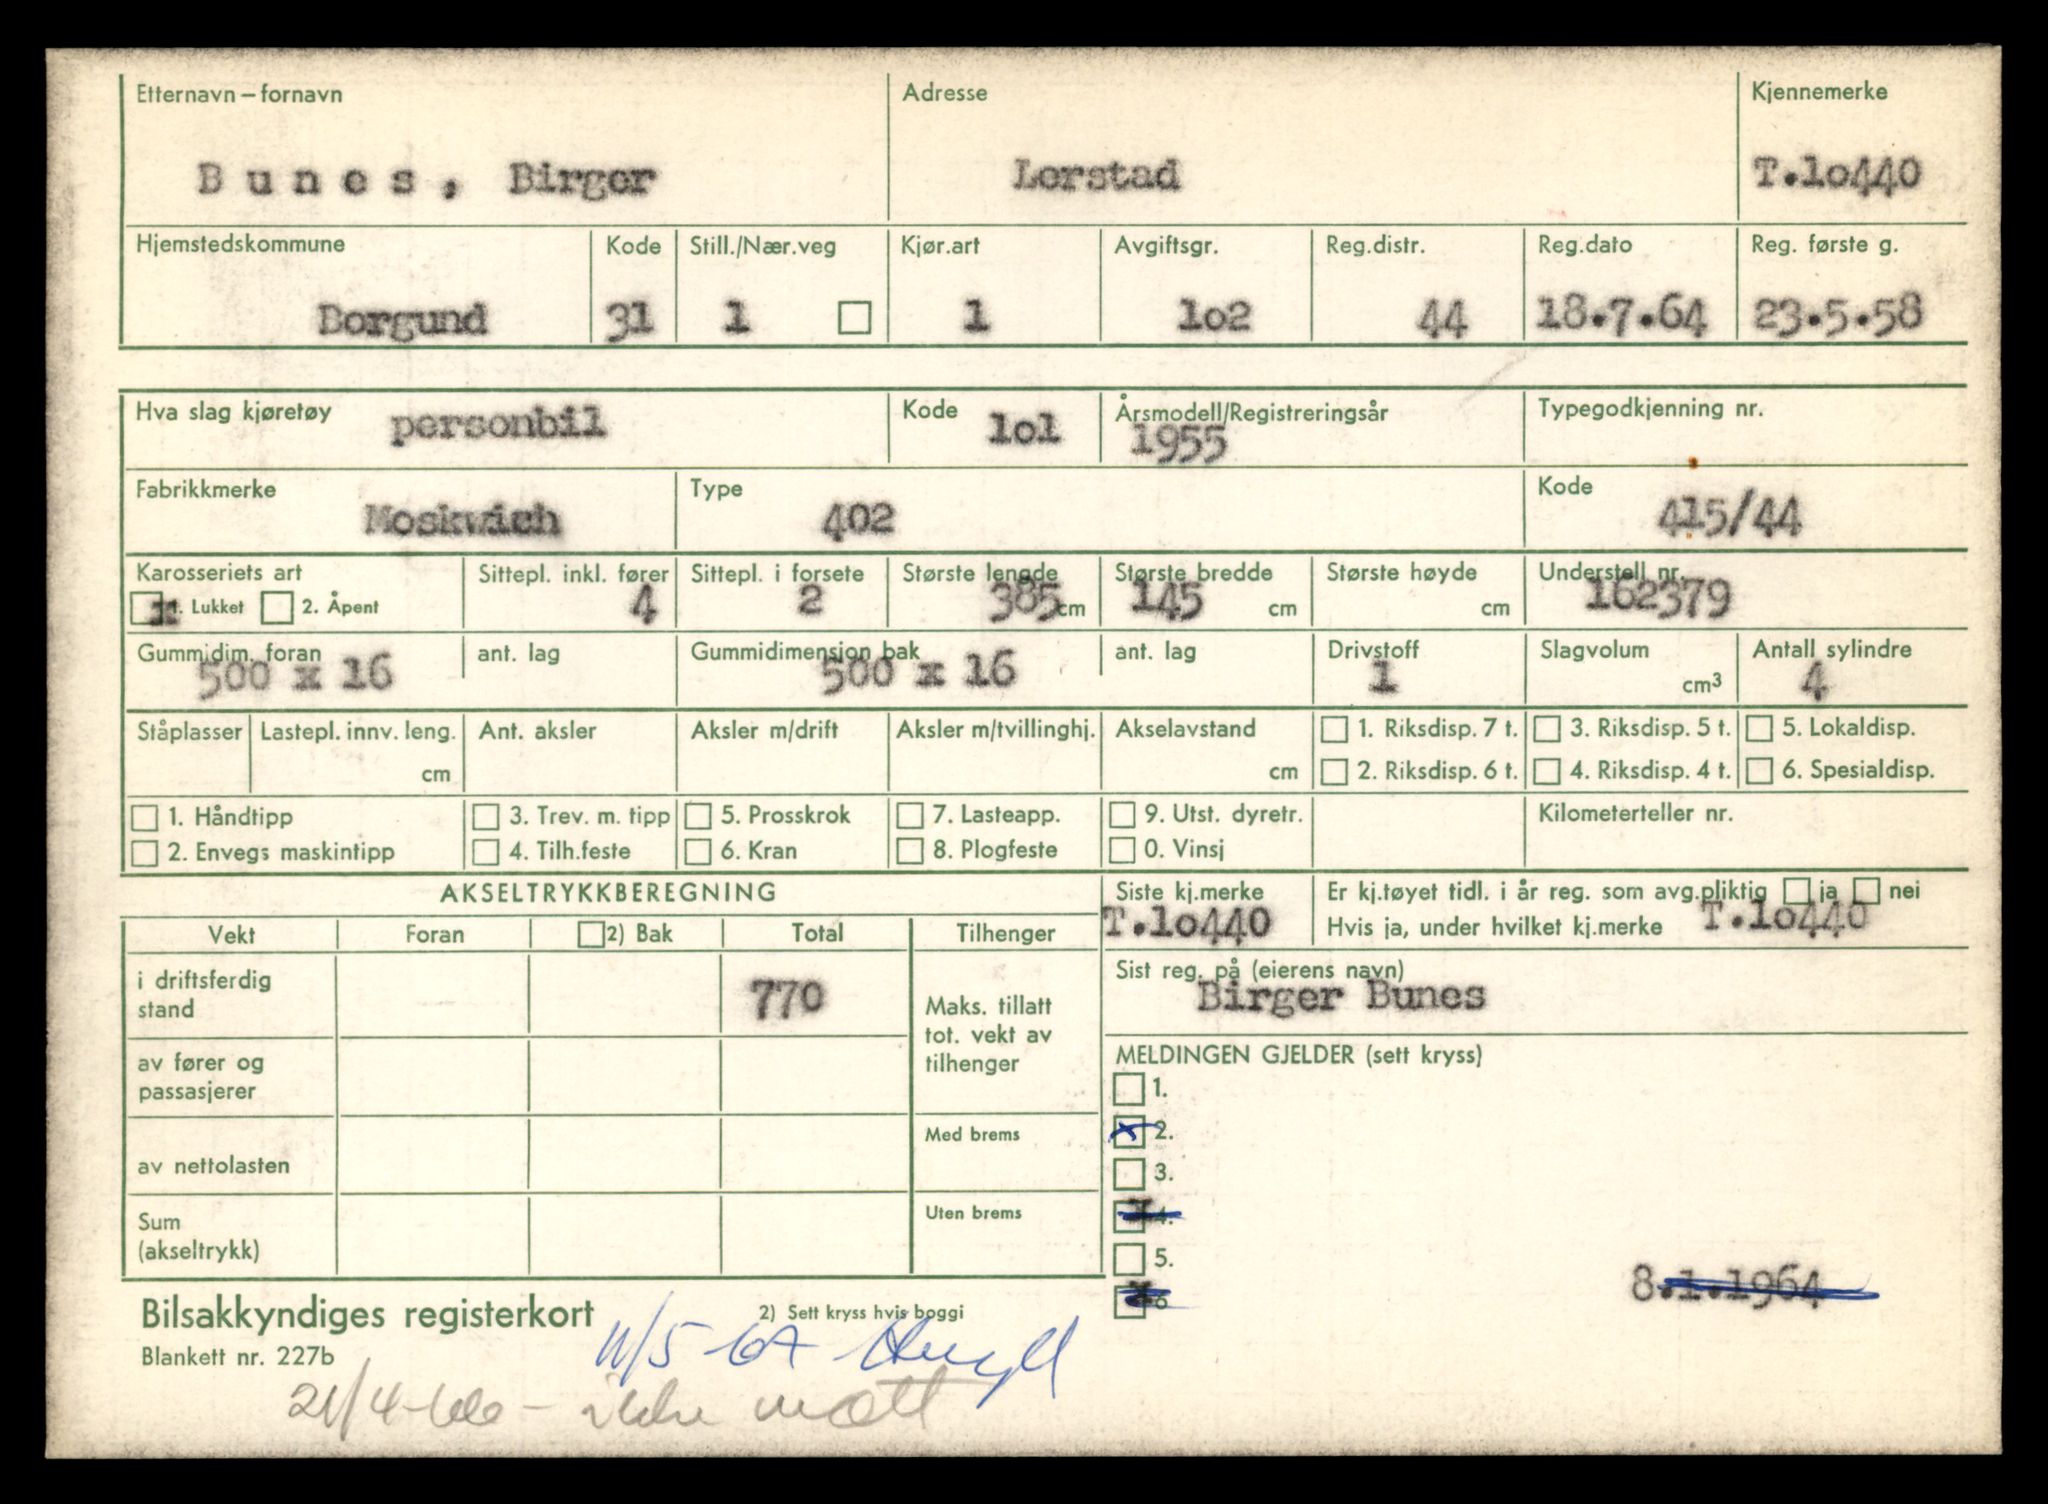 Etternavn – fornavn Adresse Kjennemerke
Bunes, Birger Lerstad T.10440
Hjemstedskommune Kode Still./Nær.veg Kjør.art Avgiftsgr. Reg.distr. Reg.dato Reg. første g.
Borgund 31 1 1 102 44 18.7.64 23.5.58
Hva slag kjøretøy personbil Kode 101 Årsmodell/Registreringsår 1955 Typegodkjenning nr.
Fabrikkmerke Moskwich Type 402 Kode 415/44
Karosseriets art Sittepl. inkl. fører Sittepl. i forsete Største lengde Største bredde Største høyde Understell nr.
x 1. Lukket 2. Åpent 4 2 385 cm 145 cm cm 162379
Gummidim. foran ant. lag Gummidimensjon bak ant. lag Drivstoff Slagvolum Antall sylindre
500 x 16 500 x 16 1 cm³ 4
Ståplasser Lastepl. innv. leng. Ant. aksler Aksler m/drift Aksler m/tvillinghj. Akselavstand 1. Riksdisp. 7 t. 3. Riksdisp. 5 t. 5. Lokaldisp.
cm cm 2. Riksdisp. 6 t. 4. Riksdisp. 4 t. 6. Spesialdisp.
1. Håndtipp 3. Trev. m. tipp 5. Prosskrok 7. Lasteapp. 9. Utst. dyretr. Kilometerteller nr.
2. Envegs maskintipp 4. Tilh.feste 6. Kran 8. Plogfeste 0. Vinsj
AKSELTRYKKBEREGNING Siste kj.merke Er kj.tøyet tidl. i år reg. som avg.pliktig ja nei
T.10440 Hvis ja, under hvilket kj.merke T.10440
Vekt Foran 2) Bak Total Tilhenger
Sist reg. på (eierens navn)
Birger Bunes
i driftsferdig stand 770
Maks. tillatt tot. vekt av tilhenger
av fører og passasjerer
MELDINGEN GJELDER (sett kryss)
1.
x 2.
Med brems
av nettolasten
3.
x 4.
Uten brems
Sum (akseltrykk)
5.
x 6
8.1.1964
Bilsakkyndiges registerkort 2) Sett kryss hvis boggi
Blankett nr. 227b
11/5-67
21/4-66 - ikke møtt